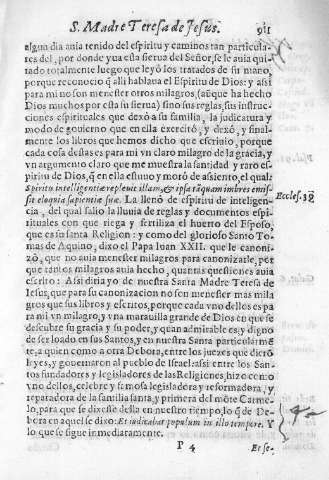 S. Madre Teresa de Jesus. 911
algun dia auia tenido del espiritu y caminos tan particula
res del, por donde yua esta sierua del Señor, se le auia qui-
tado totalmente luego que leyó los tratados de su mano,
porque reconocio q̃ alli hablaua el Espiritu de Dios: y assi
para mi no son menester otros milagros, (aũque ha hecho
Dios muchos por esta su sierua) sino sus reglas, sus instruc-
ciones espirituales que dexò a su familia, la judicatura y
modo de gouierno que en ella exercitó, y dexò, y final-
mente los libros que hemos dicho que escriuio, porque
cada cosa destas es para mi vn claro milagro de la gracia, y
vn argumento claro que me muestra la santidad y raro es-
piritu de Dios, q̃ en ella estuuo y moró de assiento, el qual
Spiritu intelligentiæ repleuit illam, & ipsa tãquam imbres emis-
sit eloquia sapientiæ suæ. La llenó de espiritu de inteligen-
Eccles. 39
cia, del qual salio la lluuia de reglas y documentos espi-
rituales con que riega y fertiliza el huerto del Esposo,
que es su santa Religion: y como del glorioso Santo To-
mas de Aquino, dixo el Papa Iuan XXII. que le canoni-
zó, que no auia menester milagros para canonizarle, por
que tantos milagros auia hecho, quantas questiones auia
escrito: Assi diria yo de nuestra Santa Madre Teresa de
Iesus, que para su canonizacion no son menester mas mila
gros que sus libros y escritos, porque cada vno dellos es pa
ra mi vn milagro, y vna marauilla grande de Dios en que se
descubre su gracia y su poder, y quan admirable es, y digno
de ser loado en sus Santos, y en nuestra Santa particularmẽ
te, a quien como a otra Debora, entre los juezes que dierõ
leyes, y gouernaron al pueblo de Israel: assi entre los San-
tos fundadores y legisladores de las Religiones, hizo como
vno dellos, celebre y famosa legisladora y reformadora, y
reparadora de la familia santa, y primera del mõte Carme-
lo, para que se dixesse della en nuestro tiempo, lo q̃ de De-
bora en aquel se dixo: Et iudicabat populum in illo tempore. Y
lo que se sigue inmediaramente.
P 4 Et se-